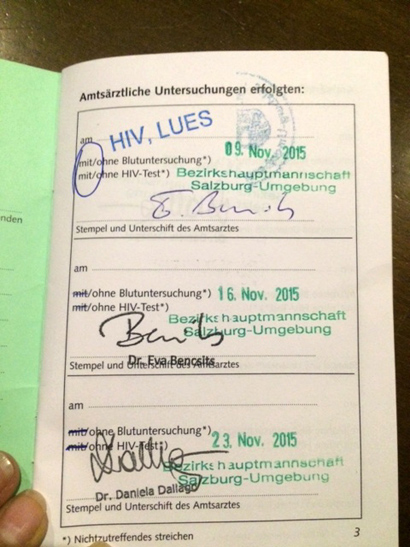 Amtsärztliche Untersuchungen erfolgten:
am
HIV, LUES
09. Nov. 2015
mit/ohne Blutuntersuchung*)
mit/ohne HIV-Test*)
Bezirkshauptmannschaft
Salzburg-Umgebung
Stempel und Unterschrift des Amtsarztes
am
mit/ohne Blutuntersuchung*)
16. Nov. 2015
mit/ohne HIV-Test*)
Bezirkshauptmannschaft
Salzburg-Umgebung
Dr. Eva Bencsits
Stempel und Unterschrift des Amtsarztes
am
mit/ohne Blutuntersuchung*)
23. Nov. 2015
mit/ohne HIV-Test*)
Bezirkshauptmannschaft
Salzburg-Umgebung
Dr. Daniela Dallago
Stempel und Unterschrift des Amtsarztes
*) Nichtzutreffendes streichen
3
nden